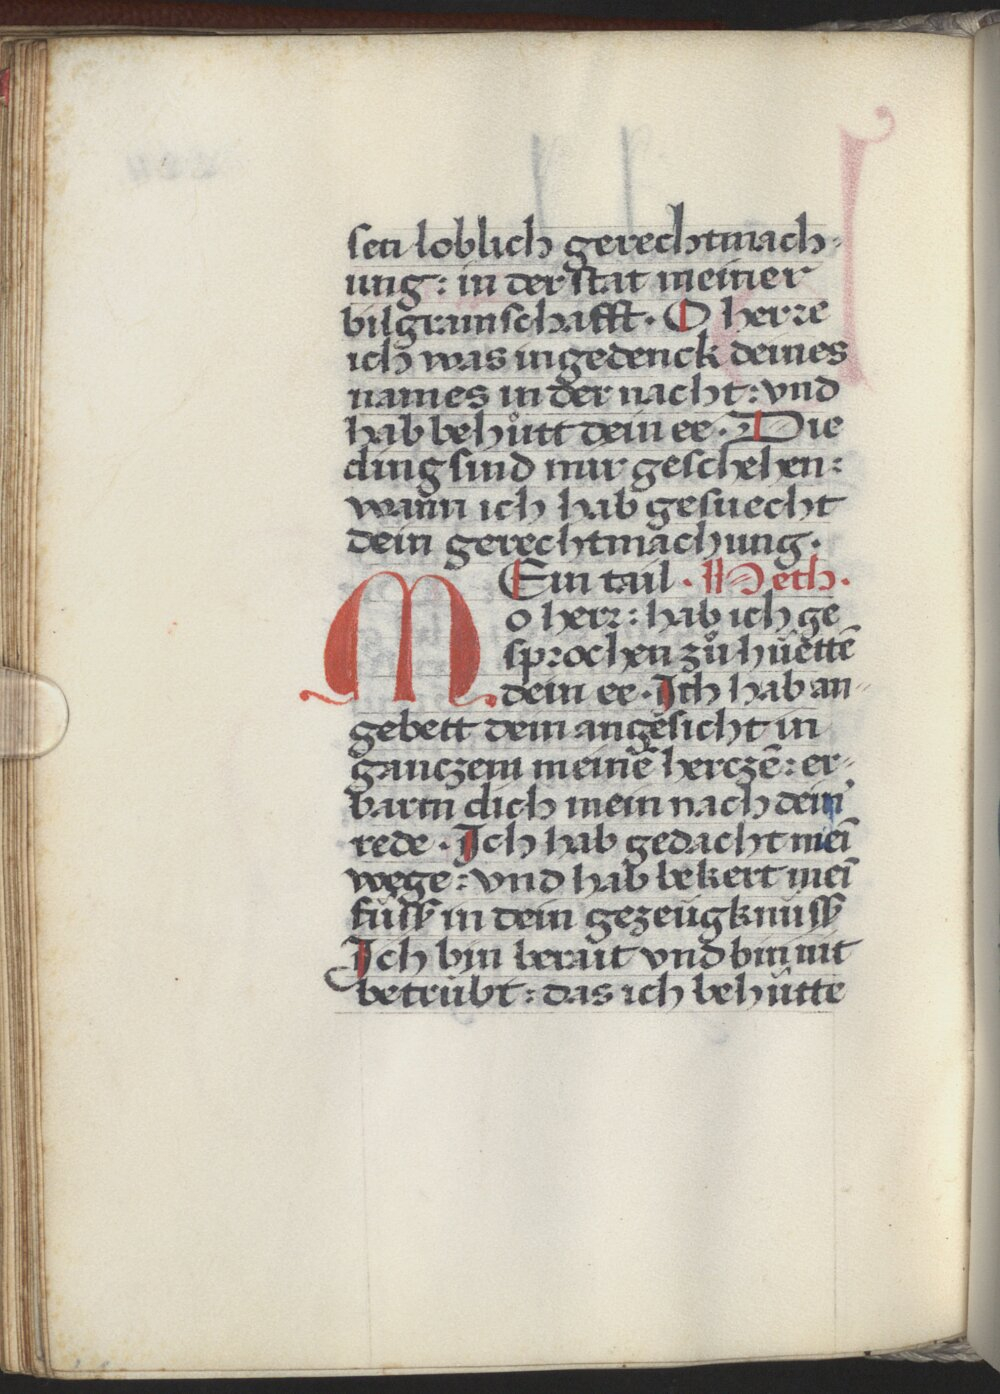 sen loblich gerechtmach-
ung: in der stat meiner
bilgramschafft. O herre
ich was ingedenck deines
names in der nacht: vnd
hab behůtt dein ee. Die
ding sind mir geschehen:
wann ich hab gesuecht
dein gerechtmachung.
MEin tail. Heth.
o herr: hab ich ge
sprochen zů hüettē
dein ee. Ich hab an-
gebett dein angesicht in
ganczem meinē herczē: er-
barm dich mein nach deim
rede. Ich hab gedacht mei̅
wege: vnd hab bekert mei̅
füss in dein gezeugknüss
Ich bin berait vnd bin nit
betrübt: das ich behütte